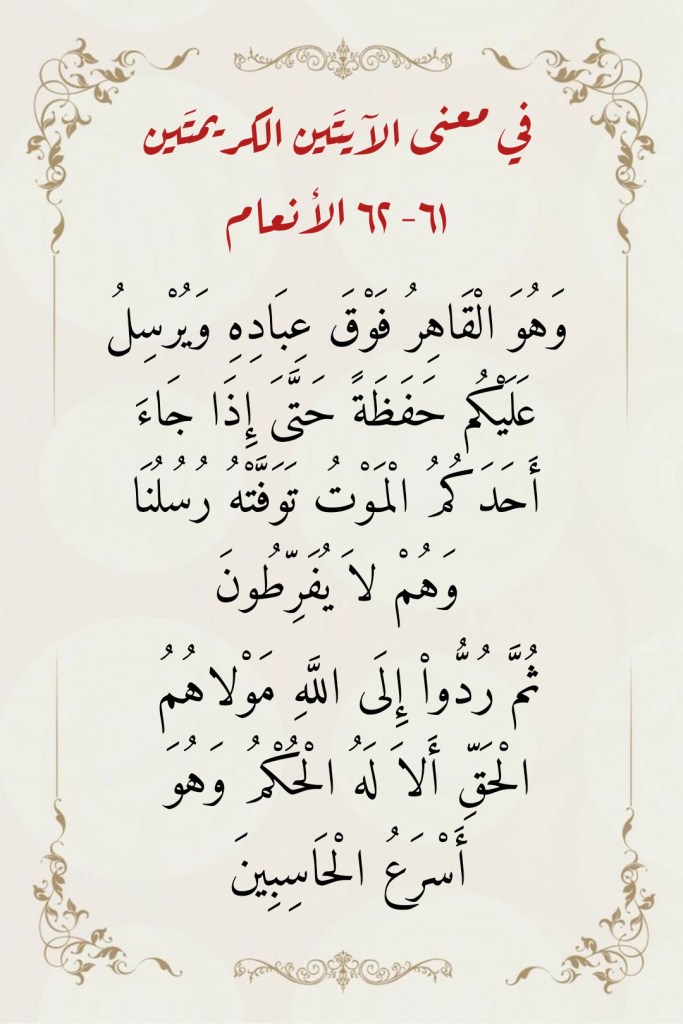 في معنى الآيتَين الكريمتَين
٦١- ٦٢ الأنعام
وَهُوَ الْقَاهِرُ فَوْقَ عِبَادِهِ وَيُرْسِلُ
عَلَيْكُم حَفَظَةً حَتَّىَ إِذَا جَاءَ
أَحَدَكُمُ الْمَوْتُ تَوَفَّتْهُ رُسُلُنَا
وَهُمْ لاَ يُفَرِّطُونَ
ثُمَّ رُدُّواْ إِلَى اللَّهِ مَوْلاهُمُ
الْحَقِّ أَلاَ لَهُ الْحُكْمُ وَهُوَ
أَسْرَعُ الْحَاسِبِينَ